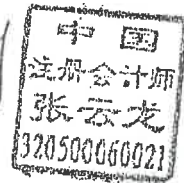 中国
注册会计师
张云龙
320500060021